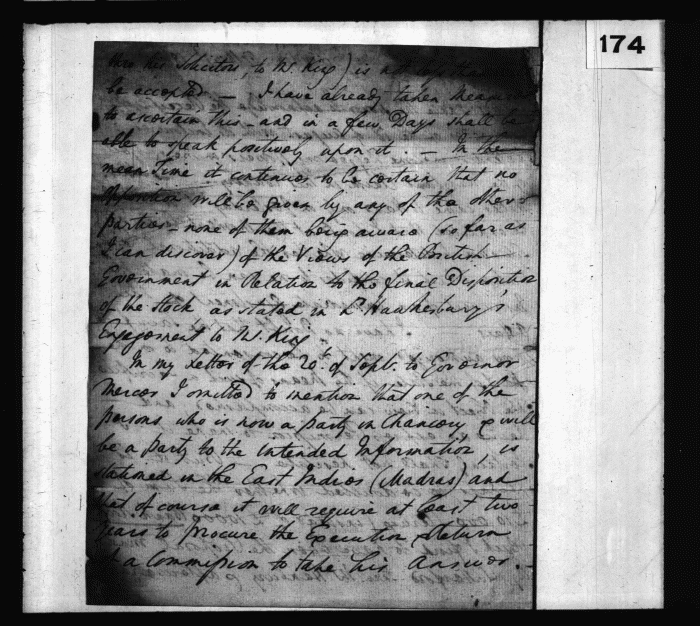 174
thro his Solicitors, to Mr. King) is not
be accepted — I have already taken Measures
to ascertain this — and in a few Days shall be
able to speak positively upon it. — In the
mean Time it continues to be certain that no
Opposition will be given by any of the other
parties — none of them being aware (so far as
I can discover) of the Views of the British
Government in Relation to the final Disposition
of the Stock as stated in Ld. Hawkesbury's
Engagement to Mr. King.
In my Letter of the 20t. of Sept. to Governor
Mercer I omitted to mention that one of the
persons who is now a party in Chancery, & will
be a party to the intended Information, is
stationed in the East Indies (Madras) and
that of course it will require at least two
years to procure the Execution & Return
of a Commission to take his Answer. —